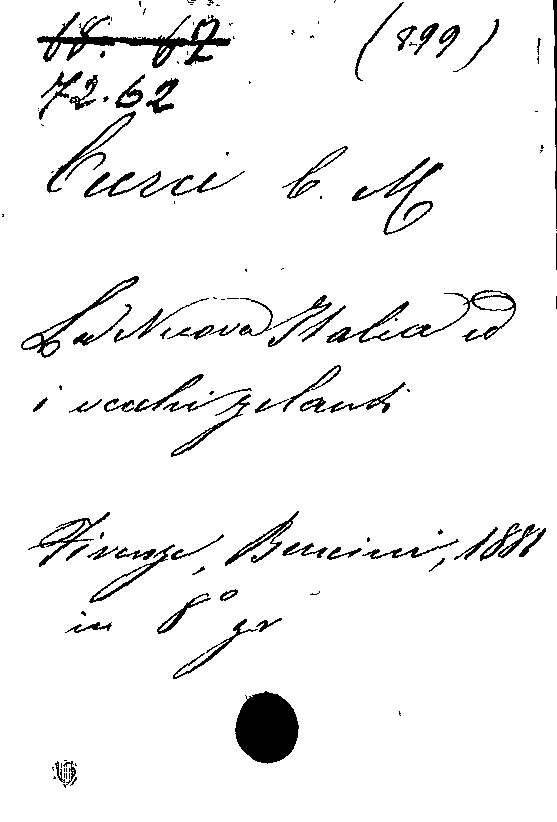 68. 62 (899)
72.62
Curci C. M
La Nuova Italia ed
i vecchi zelanti
Firenze, Bencini, 1881
in 8° gr